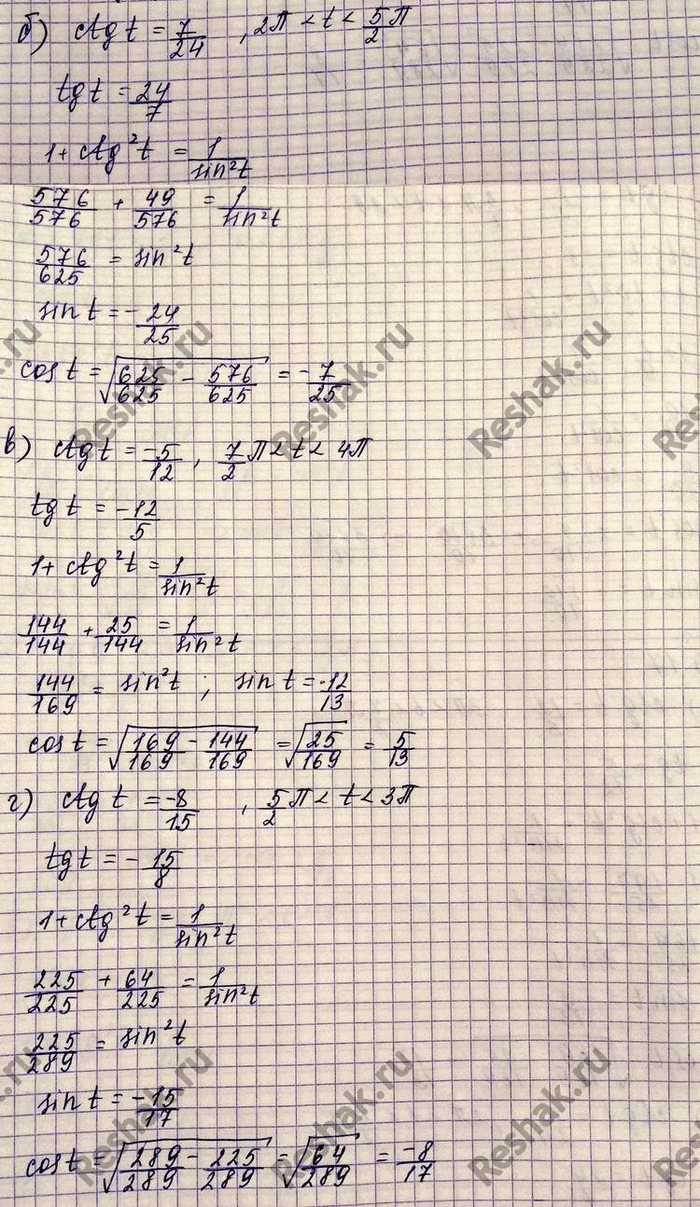 б) ctg t = 7/24 , 2π < t < 5/2 π
tg t = 24/7
1 + ctg²t = 1/sin²t
576/576 + 49/576 = 1/sin²t
576/625 = sin²t
sin t = -24/25
cos t = √(625/625 - 576/625) = -7/25
в) ctg t = -5/12 , 7/2 π < t < 4π
tg t = -12/5
1 + ctg²t = 1/sin²t
144/144 + 25/144 = 1/sin²t
144/169 = sin²t ; sin t = -12/13
cos t = √(169/169 - 144/169) = √(25/169) = 5/13
г) ctg t = -8/15 , 5/2 π < t < 3π
tg t = -15/8
1 + ctg²t = 1/sin²t
225/225 + 64/225 = 1/sin²t
225/289 = sin²t
sin t = -15/17
cos t = √(289/289 - 225/289) = √(64/289) = -8/17
Reshak.ru